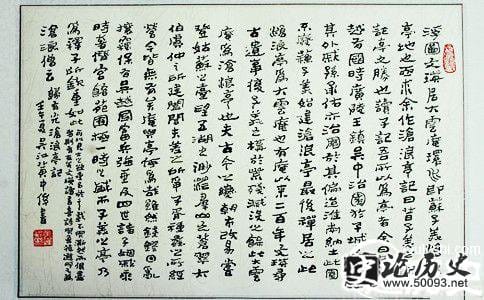 浮圖文瑛居大雲庵環水即蘇子美滄浪
亭地也亟求余作滄浪亭記曰昔子美之
記亭之勝也請子記吾所以為亭者余曰昔吳
越有國時廣陵王鎮吳中治園於子城之西南
其外戚孫承佑亦治園於其偏迨淮海納土此園
不廢蘇子美始建滄浪亭最後禪者居之此
滄浪亭為大雲庵也有庵以來二百年文瑛尋
古遺事復子美之構於荒殘滅沒之餘此大雲
庵為滄浪亭也夫古今之變朝市改易嘗
登姑蘇之台望五湖之渺茫群山之蒼翠太
伯虞仲之所建闔閭夫差之所爭子胥種蠡之所經
營今皆無有矣庵與亭何為者哉雖然錢鏐因亂
攘竊保有吳越國富兵強垂及四世諸子姻戚乘
時奢僭宮館苑囿極一時之盛而子美之亭乃
為釋子所欽重如此
滄浪僧云 歸有光滄浪亭記
壬午夏吳江黃中俊書
历史
www.50093.net